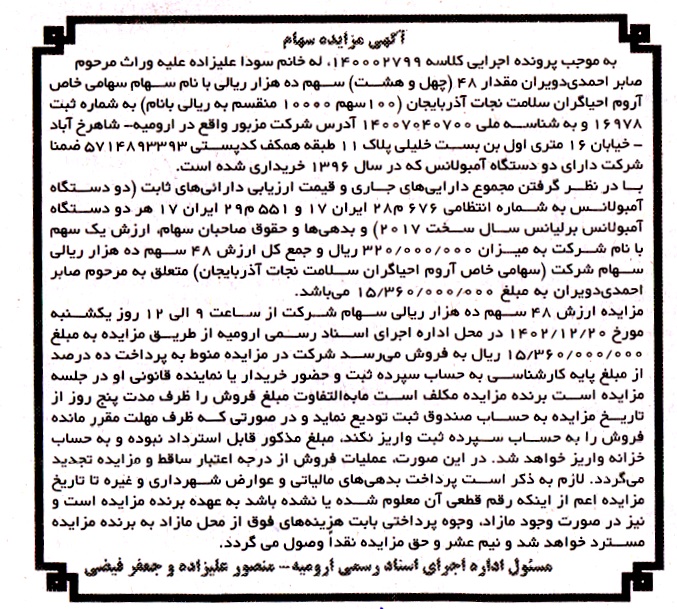 آگهی مزایده سهام
به موجب پرونده اجرایی کلاسه ۱۴۰۰۰۲۷۹۹، له خانم سودا علیزاده علیه وراث مرحوم
صابر احمدی‌دویران مقدار ۴۸ (چهل و هشت) سهم ده هزار ریالی با نام سهام سهامی خاص
آروم احیاگران سلامت نجات آذربایجان (۱۰۰سهم ۱۰۰۰۰ منقسم به ریالی بانام) به شماره ثبت
۱۶۹۷۸ و به شناسه ملی ۱۴۰۰۷۰۴۰۷۰۰ آدرس شرکت مزبور واقع در ارومیه- شاهرخ آباد
- خیابان ۱۶ متری اول بن بست خلیلی پلاک ۱۱ طبقه همکف کدپستی ۵۷۱۴۸۹۳۳۹۳ ضمنا
شرکت دارای دو دستگاه آمبولانس که در سال ۱۳۹۶ خریداری شده است.
با در نظر گرفتن مجموع دارایی‌های جاری و قیمت ارزیابی دارائی‌های ثابت (دو دستگاه
آمبولانس به شماره انتظامی ۶۷۶ م۲۸ ایران ۱۷ و ۵۵۱ م۲۹ ایران ۱۷ هر دو دستگاه
آمبولانس برلیانس سال سخت ۲۰۱۷) و بدهی‌ها و حقوق صاحبان سهام، ارزش یک سهم
با نام شرکت به میزان ۳۲۰/۰۰۰/۰۰۰ ریال و جمع کل ارزش ۴۸ سهم ده هزار ریالی
سهام شرکت (سهامی خاص آروم احیاگران سلامت نجات آذربایجان) متعلق به مرحوم صابر
احمدی‌دویران به مبلغ ۱۵/۳۶۰/۰۰۰/۰۰۰ می‌باشد.
مزایده ارزش ۴۸ سهم ده هزار ریالی سهام شرکت از ساعت ۹ الی ۱۲ روز یکشنبه
مورخ ۱۴۰۲/۱۲/۲۰ در محل اداره اجرای اسناد رسمی ارومیه از طریق مزایده به مبلغ
۱۵/۳۶۰/۰۰۰/۰۰۰ ریال به فروش می‌رسد شرکت در مزایده منوط به پرداخت ده درصد
از مبلغ پایه کارشناسی به حساب سپرده ثبت و حضور خریدار یا نماینده قانونی او در جلسه
مزایده است برنده مزایده مکلف است مابه‌التفاوت مبلغ فروش را ظرف مدت پنج روز از
تاریخ مزایده به حساب صندوق ثبت تودیع نماید و در صورتی که ظرف مهلت مقرر مانده
فروش را به حساب سپرده ثبت واریز نکند، مبلغ مذکور قابل استرداد نبوده و به حساب
خزانه واریز خواهد شد. در این صورت، عملیات فروش از درجه اعتبار ساقط و مزایده تجدید
می‌گردد. لازم به ذکر است پرداخت بدهی‌های مالیاتی و عوارض شهرداری و غیره تا تاریخ
مزایده اعم از اینکه رقم قطعی آن معلوم شده یا نشده باشد به عهده برنده مزایده است و
نیز در صورت وجود مازاد، وجوه پرداختی بابت هزینه‌های فوق از محل مازاد به برنده مزایده
مسترد خواهد شد و نیم عشر و حق مزایده نقداً وصول می گردد.
مسئول اداره اجرای اسناد رسمی ارومیه- منصور علیزاده و جعفر فیضی